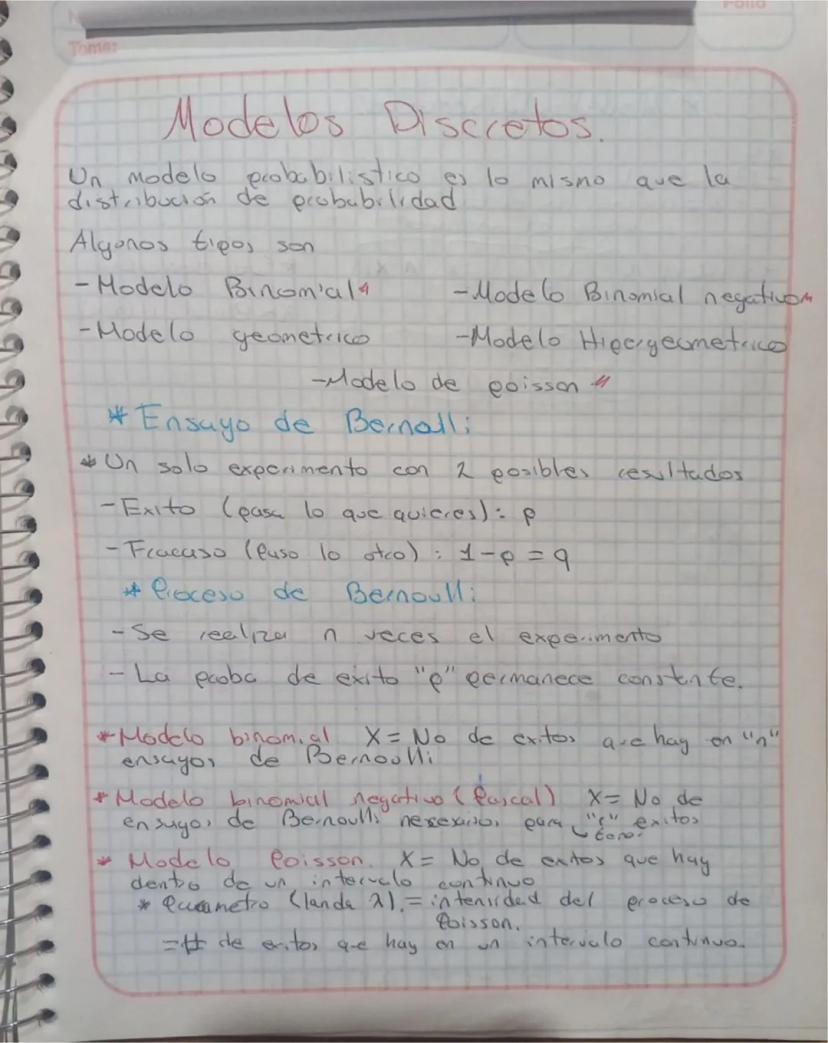 Folio
Tema:
Modelos Discretos.
Un modelo probabilistico es lo mismo que la
distribución de probabilidad
Algunos tipos son
- Modelo Binomial
- Modelo Binomial negativo
- Modelo geometrico
- Modelo Hipergeometrico
- Modelo de poisson
* Ensayo de Bernolli
* Un solo experimento con 2 posibles resultados
- Exito (pasa lo que quieres): p
- Fracaso (paso lo otro): 1-p = q
* Proceso de Bernoulli
- Se realiza n veces el experimento
- La proba de exito "p" permanece constante.
* Modelo binomial X = No de exitos que hay en "n"
ensayos de Bernoulli
* Modelo binomial negativo (Pascal) X = No de
ensayos de Bernoulli necesarios para "r" exitos
* Modelo Poisson. X = No de exitos que hay
dentro de un intervalo continuo
* Parametro (landa λ) = intensidad del proceso de
Poisson.
= # de exitos que hay en un intervalo continuo.